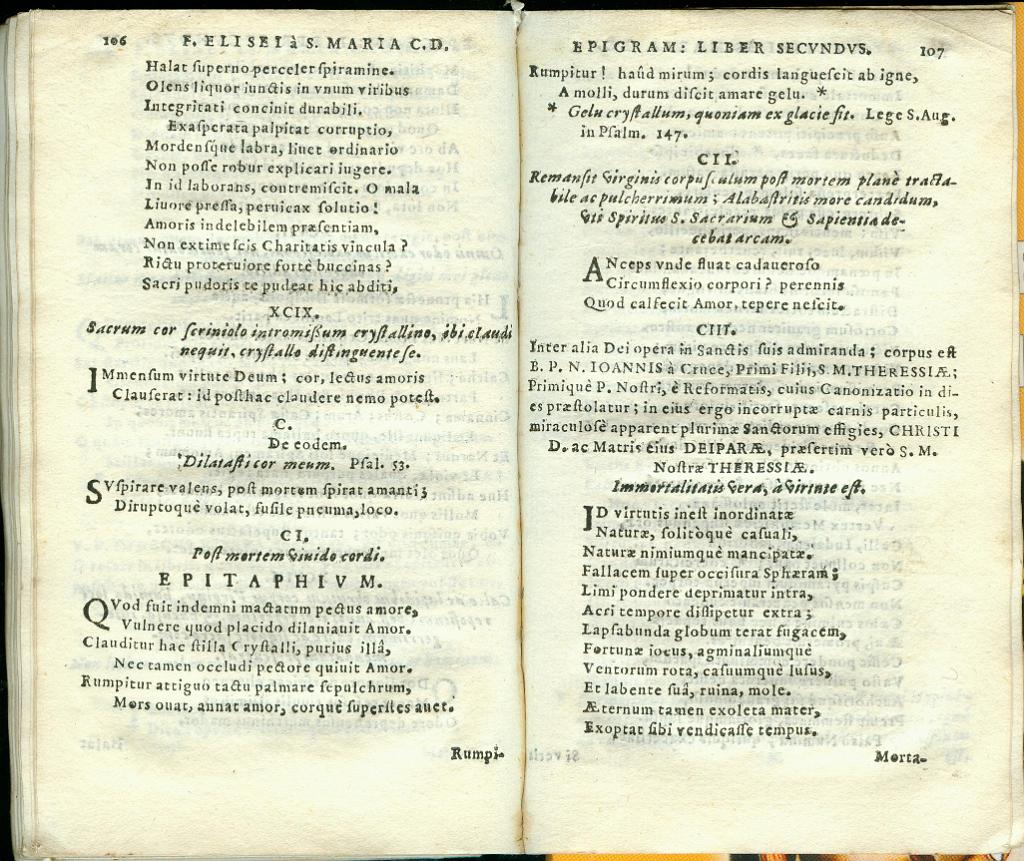 106 F. ELISEI à S. MARIA C.D.
Halat superno perceler spiramine.
Olens liquor iunctis in vnum viribus
Integritati concinit durabili.
Exasperata palpitat corruptio,
Mordensque labra, liuet ordinario
Non posse robur explicari iugere.
In id laborans, contremiscit. O mala
Liuore pressa, peruicax solutio!
Amoris indelebilem præsentiam,
Non extimescis Charitatis vincula?
Rictu proteruiore fortè buccinas?
Sacri pudoris te pudeat hic abditi,
XCIX.
Sacrum cor scriniolo intromissum crystallino, vbi claudi
nequit, crystallo distinguente se.
IMmensum virtute Deum; cor, lectus amoris
Clauserat: id posthac claudere nemo potest.
C.
De eodem.
Dilatasti cor meum. Psal. 53.
SVspirare valens, post mortem spirat amanti;
Diruptoquè volat, fusile pneuma, loco.
CI.
Post mortem viuido cordi.
EPITAPHIVM.
QVod fuit indemni mactatum pectus amore,
Vulnere quod placido dilaniauit Amor.
Clauditur hac stilla Crystalli, purius illâ,
Nec tamen occludi pectore quiuit Amor.
Rumpitur attiguo tactu palmare sepulchrum,
Mors ouat, annat amor, corquè superstes auet.
Rumpi-
EPIGRAM: LIBER SECVNDVS. 107
Rumpitur! haûd mirum; cordis languescit ab igne,
A molli, durum discit amare gelu. *
* Gelu crystallum, quoniam ex glacie fit. Lege S. Aug.
in Psalm. 147.
CII.
Remansit virginis corpusculum post mortem planè tracta-
bile ac pulcherrimum; Alabastritis more candidum,
vti Spiritus S. Sacrarium & Sapientia de-
cebat arcam.
ANceps vnde fluat cadaueroso
Circumflexio corpori? perennis
Quod calfecit Amor, tepere nescit.
CIII.
Inter alia Dei opera in Sanctis suis admiranda; corpus est
B. P. N. IOANNIS à Cruce, Primi Filij, S. M. THERESSIÆ;
Primiquè P. Nostri, è Reformatis, cuius Canonizatio in di-
es præstolatur; in eius ergo incorruptæ carnis particulis,
miraculosè apparent plurimæ Sanctorum effigies, CHRISTI
D. ac Matris eius DEIPARÆ, præsertim verò S. M.
Nostræ THERESSIÆ.
Immortalitatis vera, à virtute est.
ID virtutis inest inordinatæ
Naturæ, solitòquè casuali,
Naturæ nimiumquè mancipatæ.
Fallacem super occisura Sphæram;
Limi pondere deprimatur intra,
Acri tempore dissipetur extra;
Lapsabunda globum terat fugacem,
Fortunæ iocus, agminaliumquè
Ventorum rota, casuumquè lusus,
Et labente suâ, ruina, mole.
Æternum tamen exoleta mater,
Exoptat sibi vendicasse tempus.
Morta-